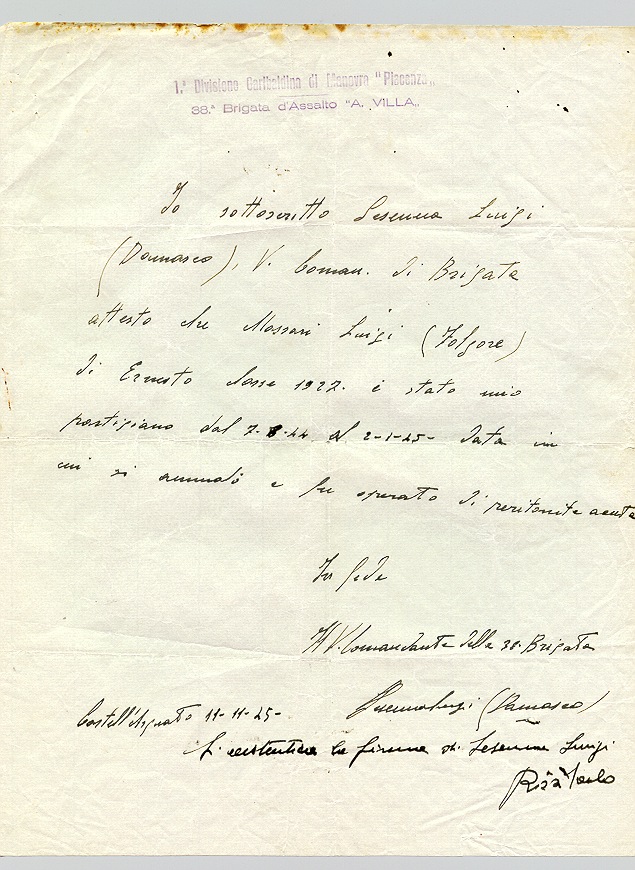 1.ª Divisione Garibaldina di Manovra "Piacenza„
38.ª Brigata d'Assalto "A. VILLA„
Io sottoscritto Sesenna Luigi
(Damasco), V. Coman. di Brigata
attesto che Massari Luigi (Folgore)
di Ernesto classe 1927. è stato mio
partigiano dal 7-8-44 al 2-1-45- data in
cui si ammalò e fu operato di peritonite acuta
In fede
Il V. Comandante della 38. Brigata
Sesenna Luigi (Damasco)
Castell'Arquato 11-11-45-
la firma di Sesenna Luigi